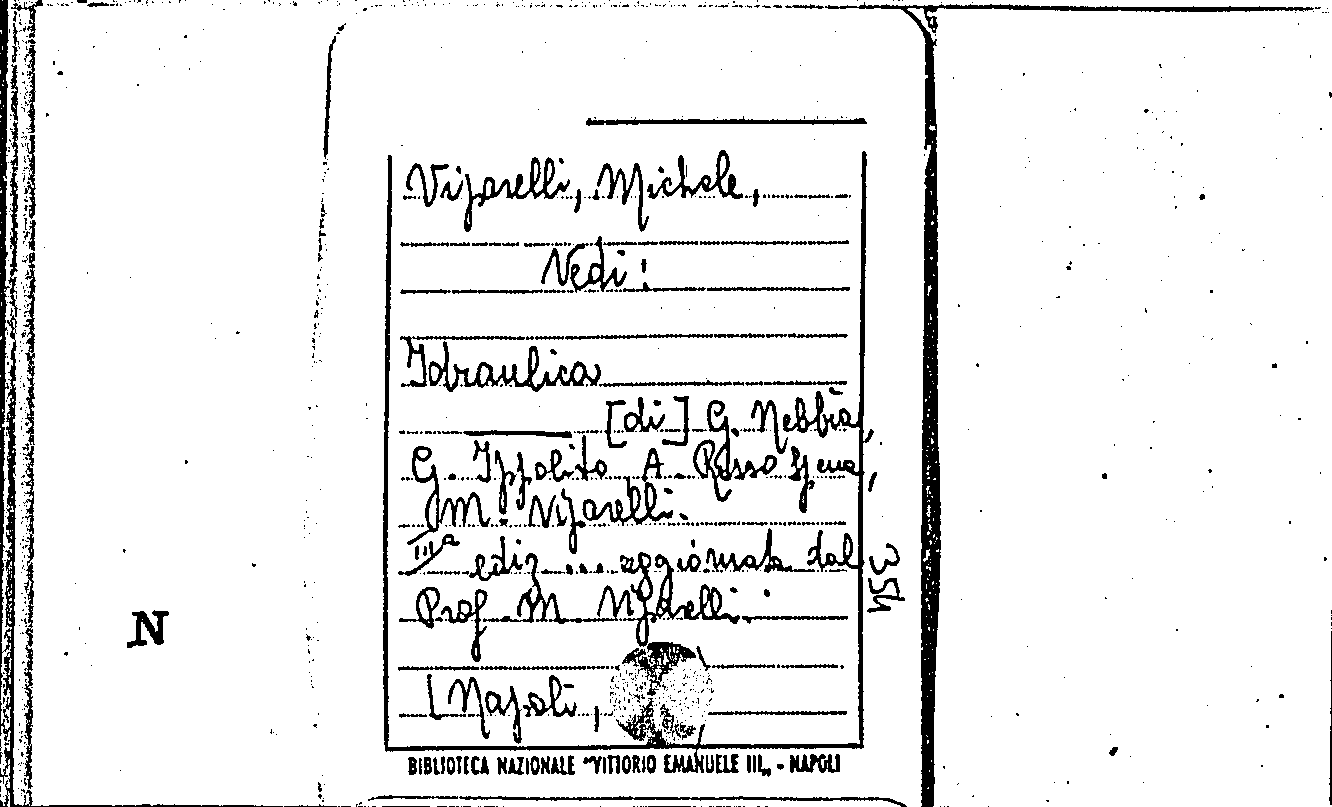 Viparelli, Michele,
Vedi:
Idraulica
[di] G. Nebbia,
G. Ippolito A. Russo Spena,
M. Viparelli.
IIIª ediz ... aggiornata dal
Prof. M. Viparelli.
354
[Napoli,
N
BIBLIOTECA NAZIONALE "VITTORIO EMANUELE III„ - NAPOLI